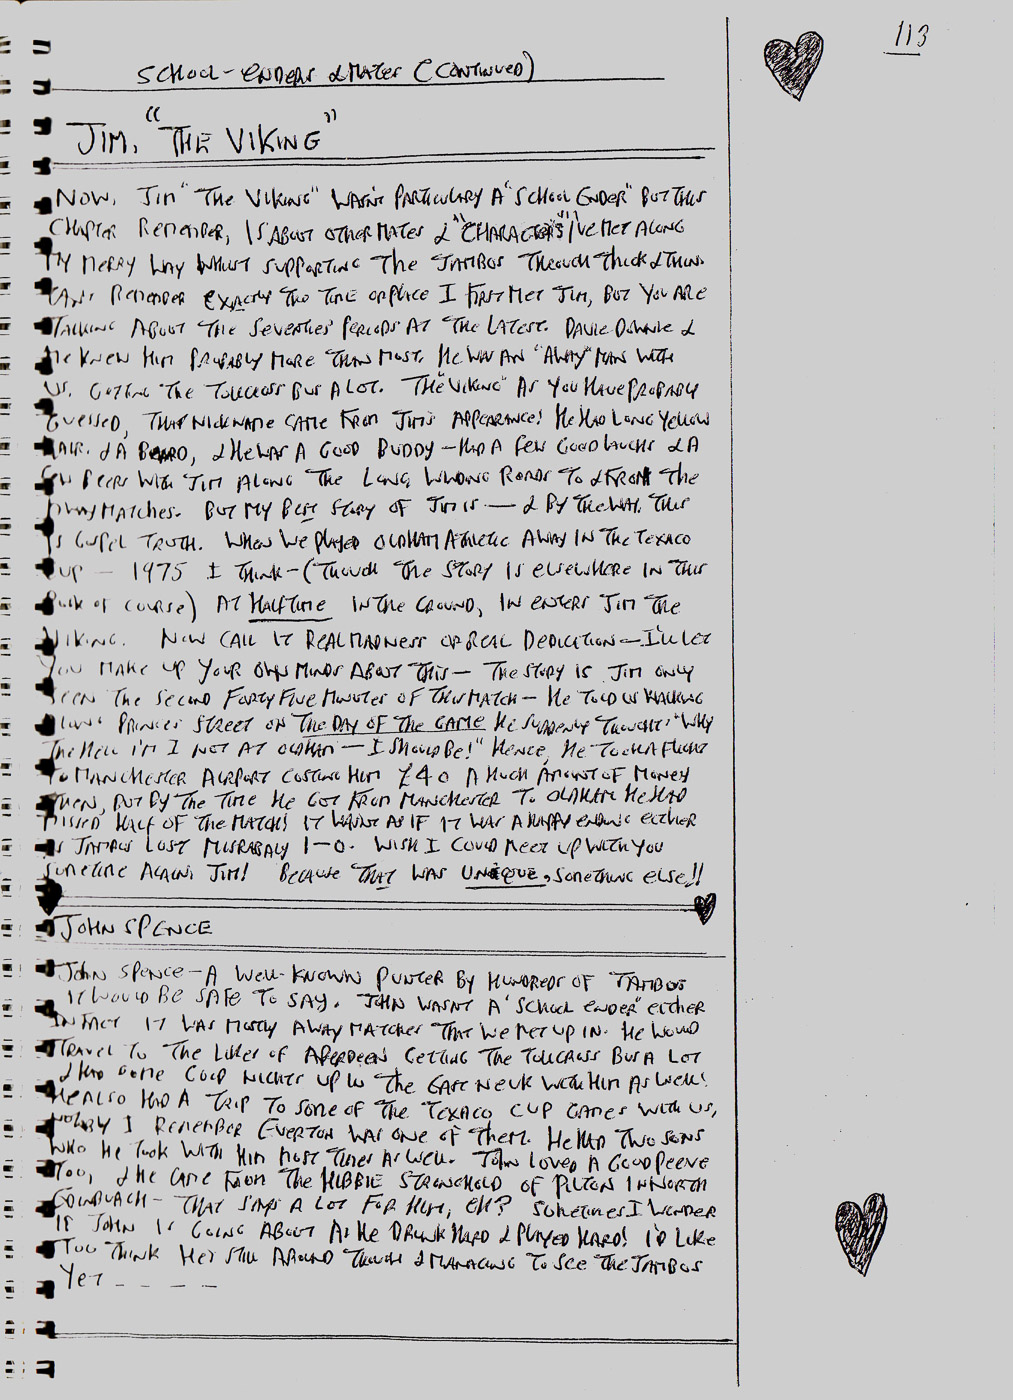 113
SCHOOL-ENDERS & MATES (CONTINUED)
JIM, "THE VIKING"
NOW, JIM "THE VIKING" WASN'T PARTICULARY A "SCHOOL ENDER" BUT THIS
CHAPTER REMEMBER, IS ABOUT OTHER MATES & "CHARACTERS" I'VE MET ALONG
MY MERRY WAY WHILST SUPPORTING THE JAMBOS THROUGH THICK & THIN.
CAN'T REMEMBER EXACTLY THE TIME OR PLACE I FIRST MET JIM, BUT YOU ARE
TALKING ABOUT THE SEVENTIES PERIODS AT THE LATEST. DAVIE DOWNIE &
ME KNEW HIM PROBABLY MORE THAN MOST. HE WAS AN "AWAY" MAN WITH
US, GETTING THE TOLLCROSS BUS A LOT. "THE VIKING" AS YOU HAVE PROBABLY
GUESSED, THAT NICKNAME CAME FROM JIM'S APPEARANCE! HE HAD LONG YELLOW
HAIR & A BEARD, & HE WAS A GOOD BUDDY - HAD A FEW GOOD LAUGHS & A
FEW BEERS WITH JIM ALONG THE LONG, WINDING ROADS TO & FROM THE
AWAY MATCHES. BUT MY BEST STORY OF JIM IS - & BY THE WAY, THIS
IS GOSPEL TRUTH. WHEN WE PLAYED OLDHAM ATHLETIC AWAY IN THE TEXACO
CUP - 1975 I THINK - (THOUGH THE STORY IS ELSEWHERE IN THIS
BOOK OF COURSE) AT HALFTIME IN THE GROUND, IN ENTERS JIM THE
VIKING. NOW CALL IT REAL MADNESS OR REAL DEDICTION - I'LL LET
YOU MAKE UP YOUR OWN MINDS ABOUT THIS - THE STORY IS JIM ONLY
SEEN THE SECOND FORTY FIVE MINUTES OF THIS MATCH - HE TOLD US WALKING
ALONG PRINCES STREET ON THE DAY OF THE GAME HE SUDDENLY THOUGHT "WHY
THE HELL I'M I NOT AT OLDHAM - I SHOULD BE!" HENCE, HE TOOK A FLIGHT
TO MANCHESTER AIRPORT COSTING HIM £40 A HUGH AMOUNT OF MONEY
THEN, BUT BY THE TIME HE GOT FROM MANCHESTER TO OLDHAM HE HAD
MISSED HALF OF THE MATCH! IT WASN'T AS IF IT WAS A HAPPY ENDING EITHER
AS JAMBOS LOST MISRABALY 1-0. WISH I COULD MEET UP WITH YOU
SOMETIME AGAIN, JIM! BECAUSE THAT WAS UNIQUE, SOMETHING ELSE!!
JOHN SPENCE
JOHN SPENCE - A WELL-KNOWN PUNTER BY HUNDREDS OF JAMBOS
IT WOULD BE SAFE TO SAY. JOHN WASN'T A "SCHOOL ENDER" EITHER
INFACT IT WAS MOSTLY AWAY MATCHES THAT WE MET UP IN. HE WOULD
TRAVEL TO THE LIKES OF ABERDEEN GETTING THE TOLLCROSS BUS A LOT
& HAD SOME GOOD NIGHTS UP IN THE EAST NEUK WITH HIM AS WELL!
HE ALSO HAD A TRIP TO SOME OF THE TEXACO CUP GAMES WITH US,
NOTABLY I REMEMBER EVERTON WAS ONE OF THEM. HE HAD TWO SONS
WHO HE TOOK WITH HIM MOST TIMES AS WELL. JOHN LOVED A GOOD PEEVE
TOO, & HE CAME FROM THE HIBBIE STRONGHOLD OF PILTON IN NORTH
EDINBURGH - THAT SAYS A LOT FOR HIM, EH? SOMETIMES I WONDER
IF JOHN IS GOING ABOUT AS HE DRUNK HARD & PLAYED HARD! I'D LIKE
TOO THINK HE'S STILL AROUND THOUGH & MANAGING TO SEE THE JAMBOS
YET _ _ _ _